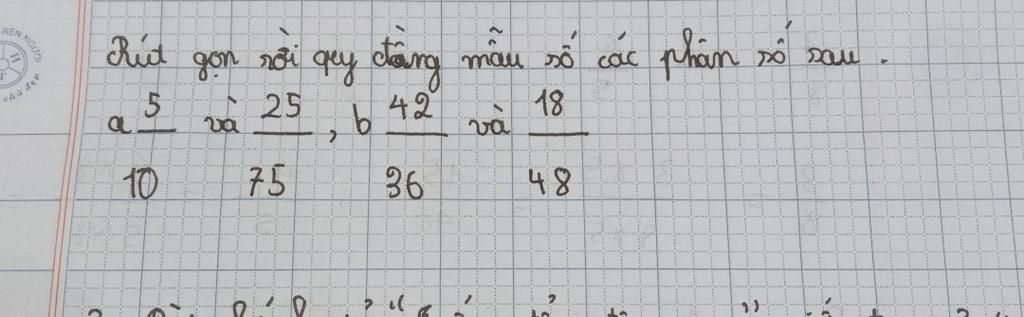 RÈN NGƯỜI
chữ đẹp
Rút gọn rồi quy đồng mẫu số các phân số sau.
a 5/10 và 25/75, b 42/36 và 18/48